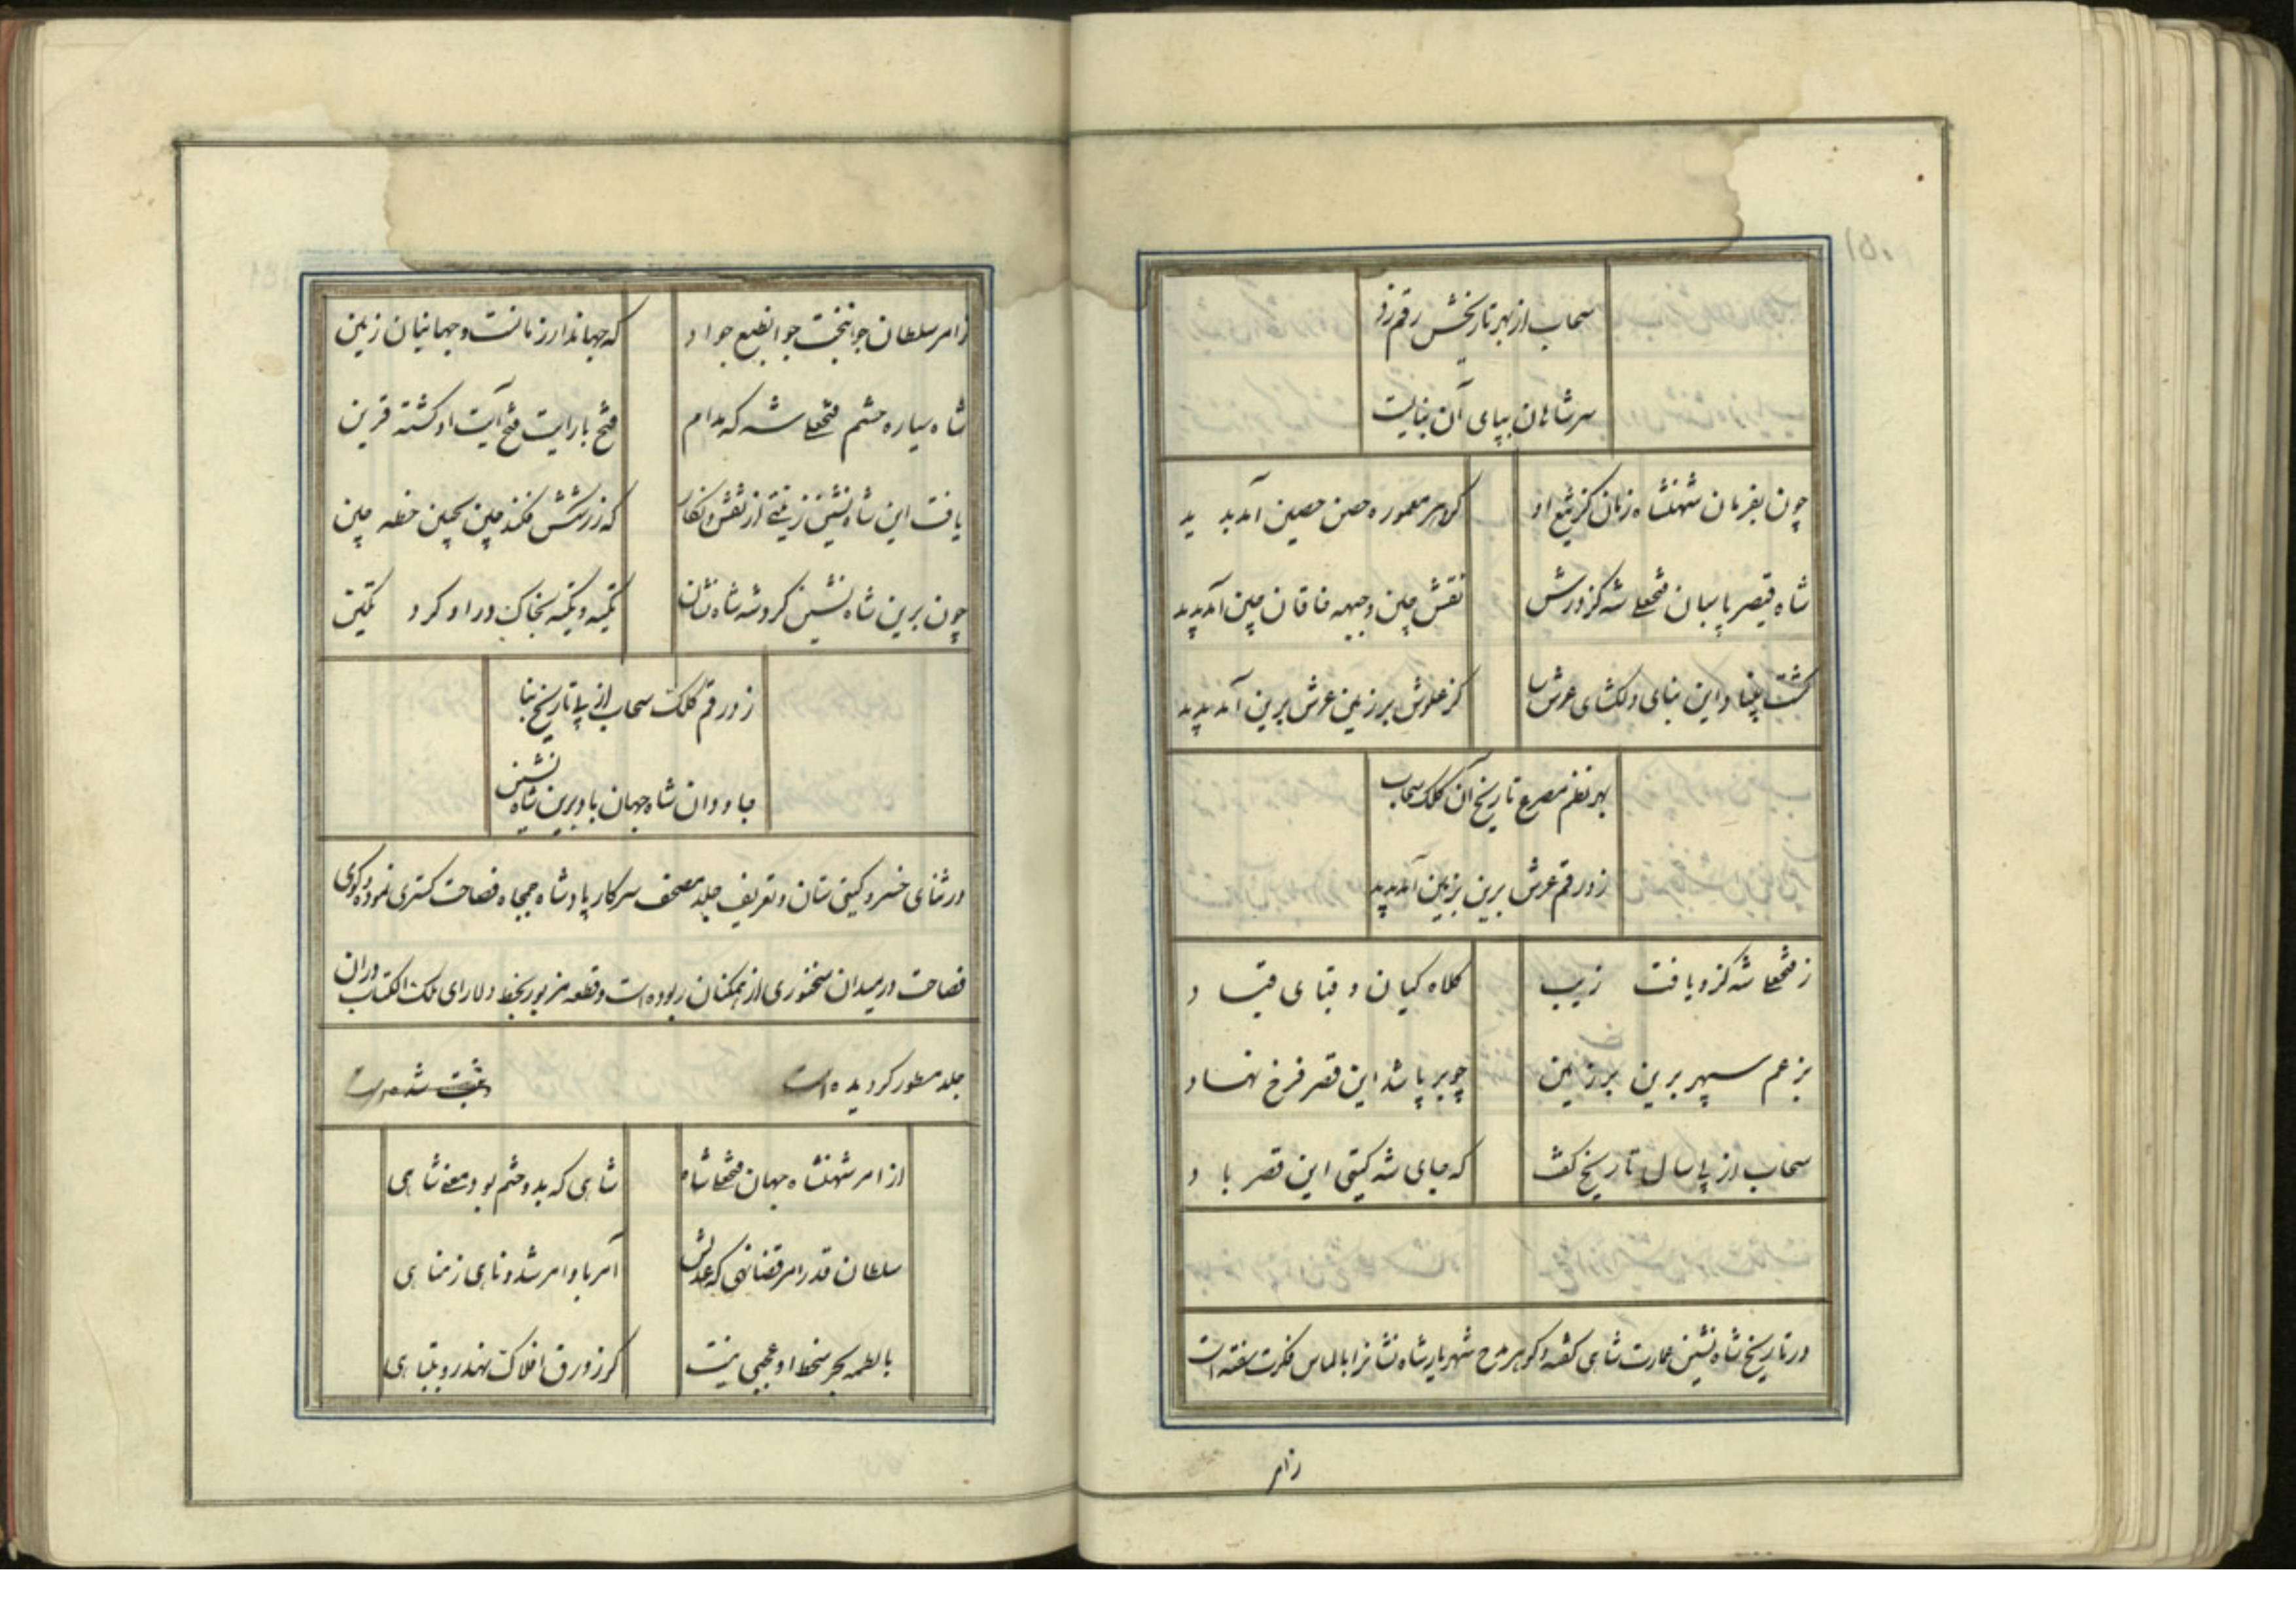 سحاب از بهر تاریخش رقم زد
سر شاهان بپای آن بنایت
چون بفرمان شهنشاه زمان کز تیغ او گوهر معموره حصن حصین آمد پدید
شاه قیصر پاسبان فتحعلی شه کز درش نقش چین و جبهه خاقان چین آمد پدید
گشت بنیاد این بنای دلگشای عرش سا کز علوش بر زمین عرش برین آمد پدید
بهر نظم مصرع تاریخ آن کلک سحاب
زد رقم عرش برین بزمین آمد پدید
ز فتحعلی شه کزو یافت زیب کلاه کیان و قبای قباد
بزعم سپهر برین بر زمین چو بر پا شد این قصر فرخ نهاد
سحاب از پی سال تاریخ گفت که جای شه گیتی این قصر باد
در تاریخ شاه نشین عمارت شاهی گفته و گوهر مدح شهریار شاه نشانرا بالماس فکرت سفته است
زامر
زامر سلطان جوانبخت جوانطبع جواد که جهاندار زمانست و جهانبان زمین
شاه سیاره حشم فتحعلی شه که مدام فتح با رایت فتح آیت او گشته قرین
یافت این شاه نشین زینتی از نقش و نگار که ز رشکش فکند چین بجبین خطه چین
چون برین شاه نشین کرد شه شاه نشان تکیه و تکیه بخاک در او کرد تکین
زد رقم کلک سحاب از پی تاریخ بنا
جاودان شاه جهان باد برین شاه نشین
در ثنای خسرو گیتی ستان و تعریف جلد مصحف سرکار پادشاه جمجاه فصاحت گستری نموده و گوی
فصاحت در میدان سخنوری از همگنان ربوده است و قطعه مزبور بخط دلارای ملک الکتاب در آن
جلد مسطور گردیده است ثبت شده است
از امر شهنشاه جهان فتحعلی شاه شاهی که بد و ختم بود معنی شاهی
سلطان قدر امر قضا نهی که عدلش آمر باوامر شد و ناهی ز مناهی
با لطمه بحر سخط او عجبی نیست گر زورق افلاک نهد رو بتباهی